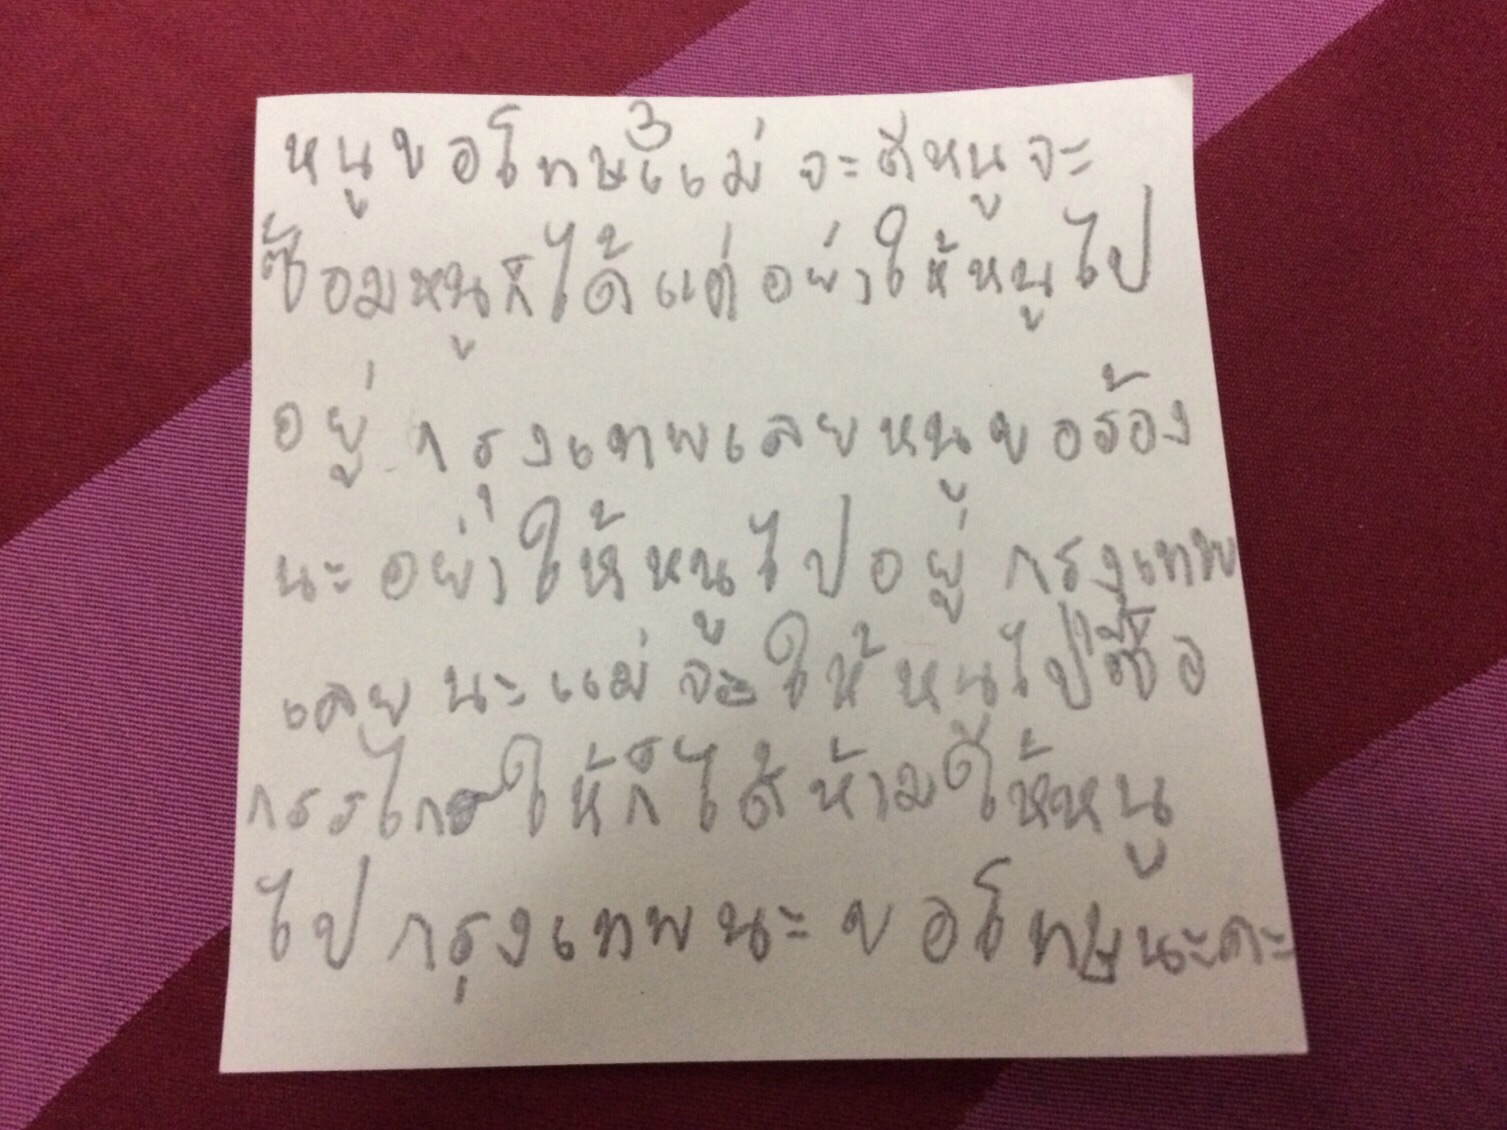 หนูขอโทษ3แม่จะตีหนูจะ
ซ้อมหนูก็ได้แต่อย่าให้หนูไป
อยู่กรุงเทพเลยหนูขอร้อง
นะอย่าให้หนูไปอยู่กรุงเทพ
เลยนะแม่จะให้หนูไปซื้อ
กรรไกรให้ก็ได้ห้ามให้หนู
ไปกรุงเทพนะขอโทษนะคะ